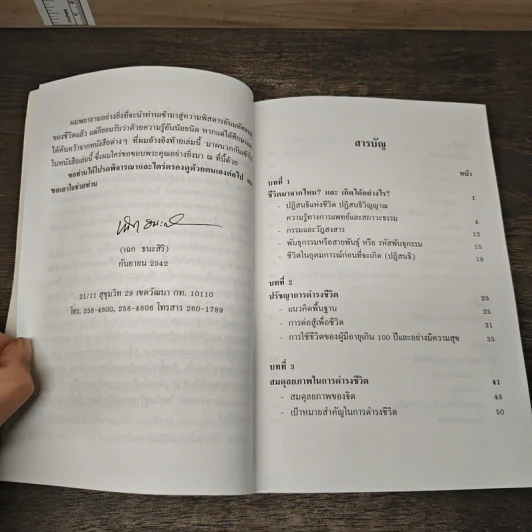 ผมพยายามอย่างยิ่งที่จะนำท่านเข้ามาสู่ความพิสดารอันมหัศจรรย์
ของชีวิตแล้ว แต่ก็ยอมรับว่าด้วยความรู้อันน้อยนิด หากแต่ได้ศึกษาและ
ได้ค้นคว้าจากหนังสือต่างๆ ที่ผมอ้างอิงท้ายเล่มนี้ มาผนวกกันเข้า
ในหนังสือเล่มนี้ ซึ่งผมใคร่ขอขอบพระคุณอย่างยิ่งมา ณ ที่นี้ด้วย
ขอท่านได้โปรดพิจารณาและไตร่ตรองดูด้วยตนเองต่อไป
ขอเอาใจช่วยท่าน
(เฉก ธนะสิริ)
กันยายน 2542
21/11 สุขุมวิท 29 เขตวัฒนา กท. 10110
โทร. 258-4800, 258-4806 โทรสาร 260-1789
สารบัญ
หน้า
บทที่ 1
ชีวิตมาจากไหน? และ เกิดได้อย่างไร? 1
- ปฏิสนธิแห่งชีวิต ปฏิสนธิวิญญาณ
ความรู้ทางการแพทย์และสภาวะธรรม 4
- กรรมและวัฏสงสาร 12
- พันธุกรรมหรือสายพันธุ์ หรือ รหัสพันธุกรรม 15
- ชีวิตในอุดมการณ์ก่อนที่จะเกิด (ปฏิสนธิ) 19
บทที่ 2
ปรัชญาการดำรงชีวิต 25
- แนวคิดพื้นฐาน 25
- การต่อสู้เพื่อชีวิต 31
- การใช้ชีวิตของผู้มีอายุเกิน 100 ปีและอย่างมีความสุข 35
บทที่ 3
สมดุลยภาพในการดำรงชีวิต 41
- สมดุลยภาพของจิต 48
- เป้าหมายสำคัญในการดำรงชีวิต 50